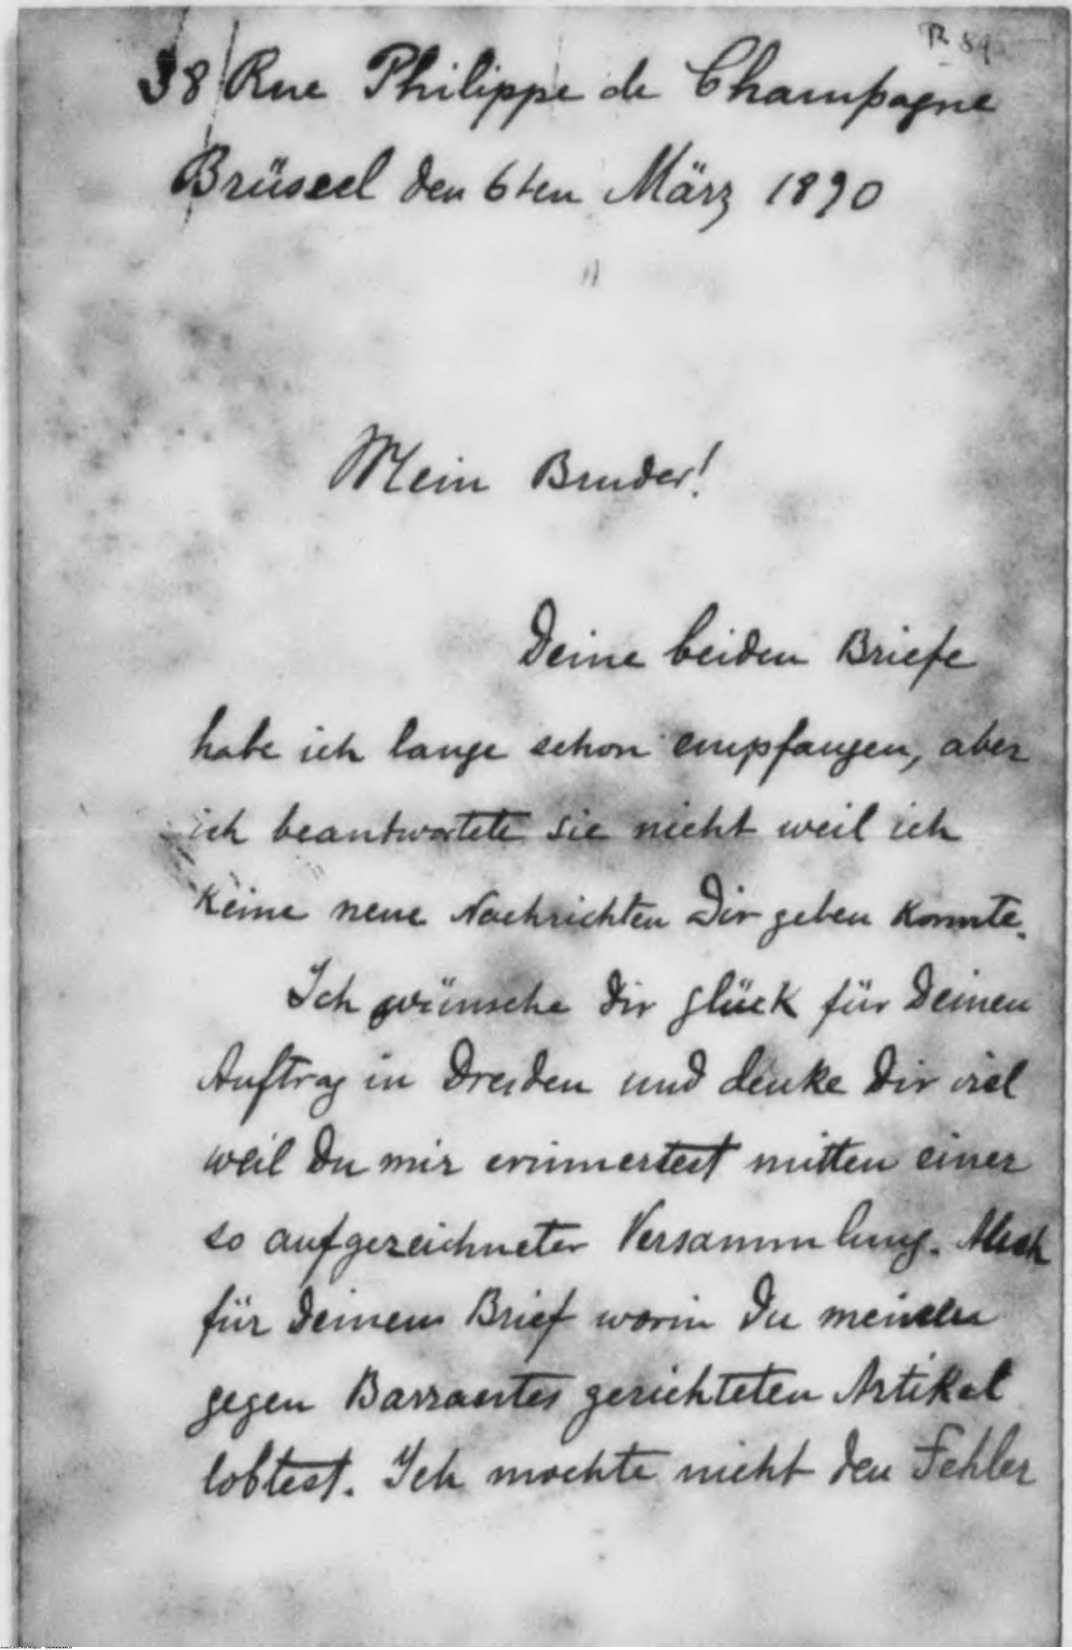 R 89
38 Rue Philippe de Champagne
Brüssel den 6ten März 1890
Mein Bruder!
Deine beiden Briefe
habe ich lange schon empfangen, aber
ich beantwortete sie nicht weil ich
keine neue Nachrichten Dir geben konnte.
Ich wünsche Dir glück für Deinen
Auftrag in Dresden und denke Dir viel
weil Du mir erinnertest mitten einer
so aufgezeichneter Versammlung. Auch
für Deinem Brief worin Du meinen
gegen Barrantes gerichteten Artikel
lobtest. Ich mochte nicht den Fehler